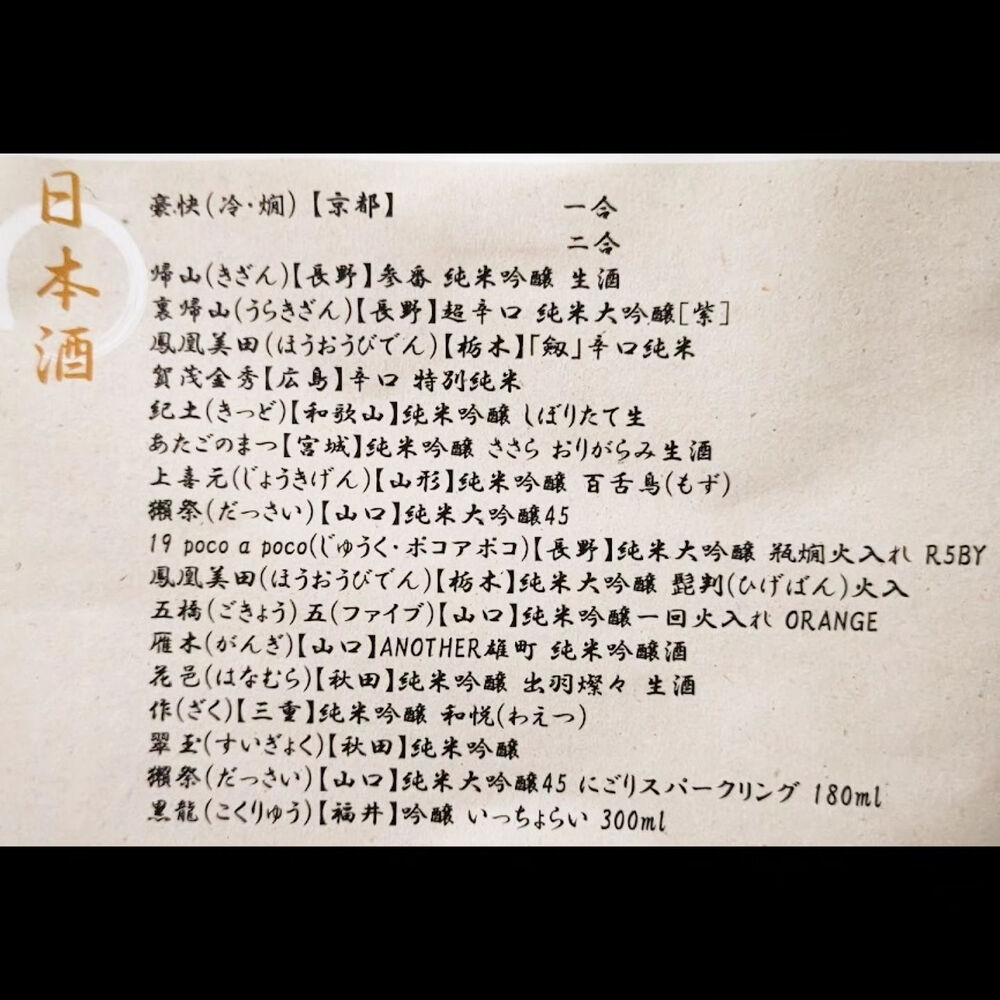 日本酒
豪快(冷・燗)【京都】 一合
二合
帰山(きざん)【長野】参番 純米吟醸 生酒
裏帰山(うらきざん)【長野】超辛口 純米大吟醸[紫]
鳳凰美田(ほうおうびでん)【栃木】「剱」辛口純米
賀茂金秀【広島】辛口 特別純米
紀土(きっど)【和歌山】純米吟醸 しぼりたて生
あたごのまつ【宮城】純米吟醸 ささら おりがらみ生酒
上喜元(じょうきげん)【山形】純米吟醸 百舌鳥(もず)
獺祭(だっさい)【山口】純米大吟醸45
19 poco a poco(じゅうく・ポコアポコ)【長野】純米大吟醸 瓶燗火入れ R5BY
鳳凰美田(ほうおうびでん)【栃木】純米大吟醸 髭判(ひげばん)火入
五橋(ごきょう)五(ファイブ)【山口】純米吟醸一回火入れ ORANGE
雁木(がんぎ)【山口】ANOTHER雄町 純米吟醸酒
花邑(はなむら)【秋田】純米吟醸 出羽燦々 生酒
作(ざく)【三重】純米吟醸 和悦(わえつ)
翠玉(すいぎょく)【秋田】純米吟醸
獺祭(だっさい)【山口】純米大吟醸45 にごりスパークリング 180ml
黒龍(こくりゅう)【福井】吟醸 いっちょらい 300ml